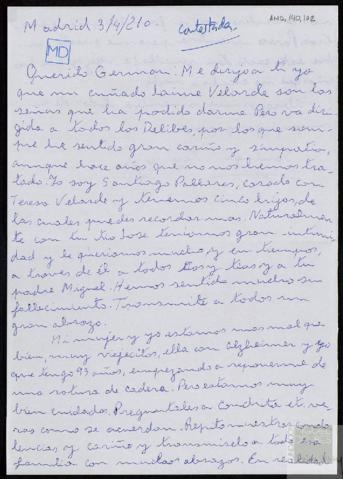 Madrid 3/4/210
contestada.
AMD,140,102
MD
Querido German: Me dirijo a ti ya
que mi cuñado Jaime Velarde son las
señas que ha podido darme. Pero va diri
gida a todos los Delibes, por los que siem-
pre he sentido gran cariño y simpatías,
aunque hace años que no nos hemos tra-
tado. Yo soy Santiago Pallares, casado con
Teresa Velarde y tenemos cinco hijos, de
las cuales puedes recordar mas. Naturalmen
te con tu tío Jose teníamos gran intimi
dad y le queríamos mucho, y en tiempos,
a traves de él a todos tíos y tías, y a tu
padre Miguel. Hemos sentido mucho su
fallecimiento. Transmite a todos un
gran abrazo.
Mi mujer y yo estamos mas mal que
bien, muy viejecitos, ella con alzheimer y yo
que tengo 93 años, empezando a reponerme de
una rotura de cadera. Pero estamos muy
bien cuidados. Pregúntales a Conchita etc. ve-
ras como se acuerdan. Repito nuestras condo
lencias y cariño y transmíselo a toda esa
familia con muchos abrazos. En realidad